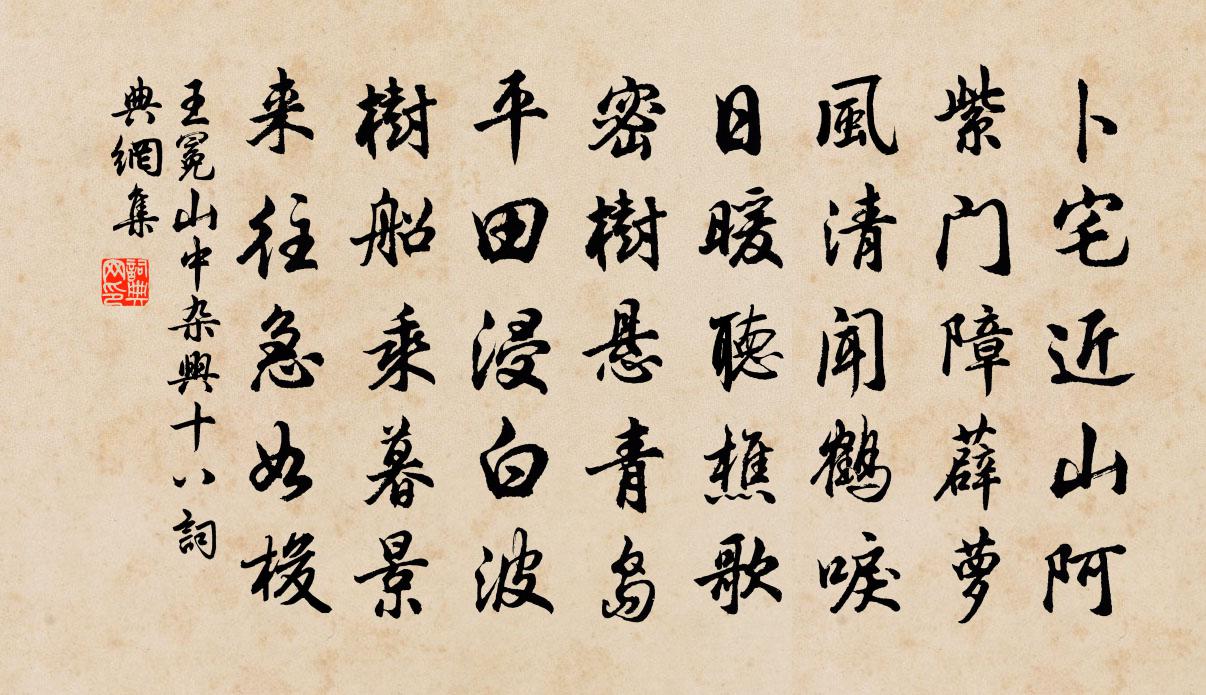 卜宅近山阿
紫门障薜萝
風清闻鶴唳
日暖聽樵歌
密樹悬青岛
平田浸白波
樹船乘暮景
来往急如梭
王冕山中杂興十八詞
典網集
詞典網印